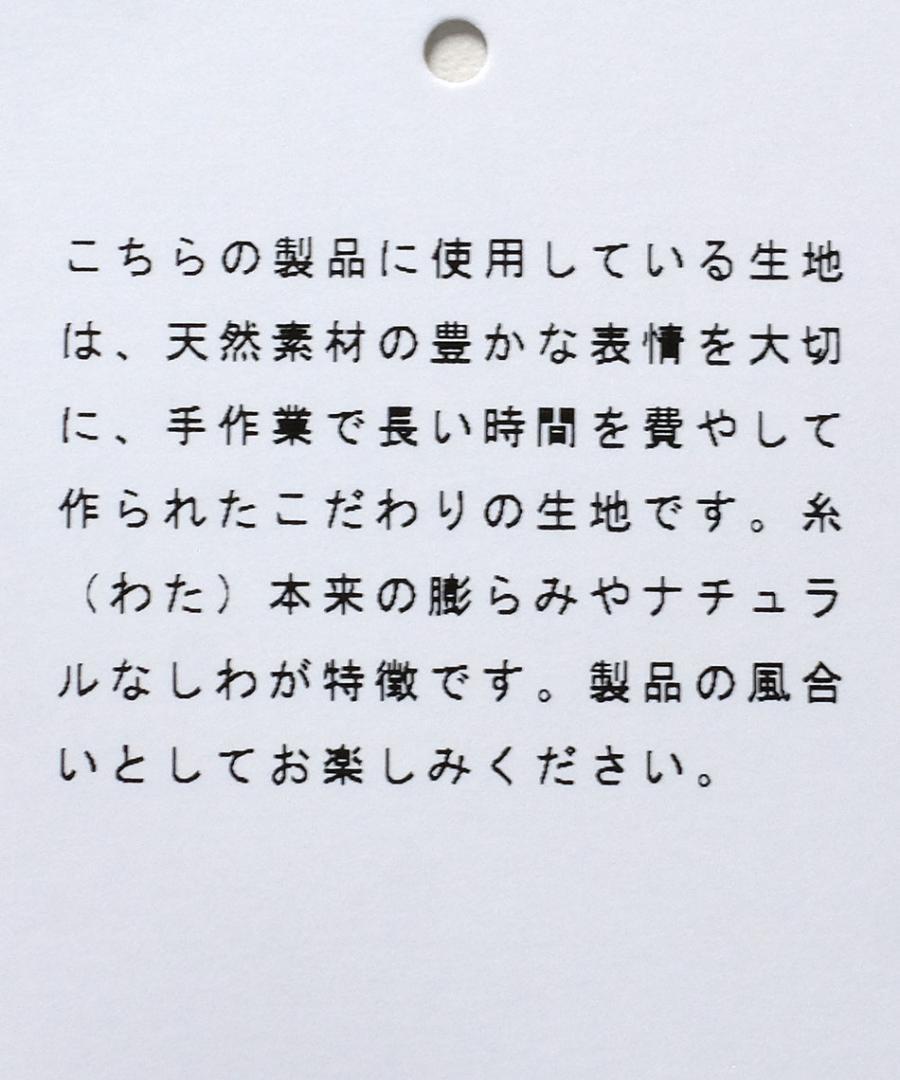 こちらの製品に使用している生地
は、天然素材の豊かな表情を大切
に、手作業で長い時間を費やして
作られたこだわりの生地です。糸
（わた）本来の膨らみやナチュラ
ルなしわが特徴です。製品の風合
いとしてお楽しみください。